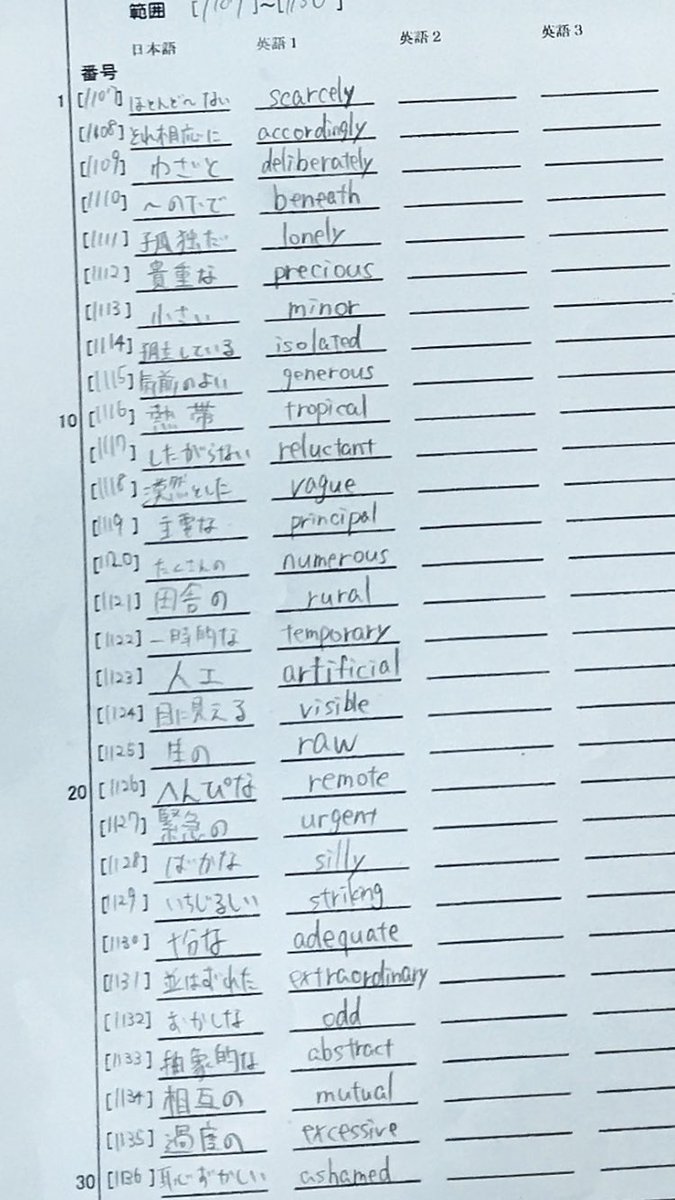 範囲 [1107]~[1136]
日本語 英語1 英語2 英語3
番号
1 [1107] ほとんど~ない scarcely
[1108] それ相応に accordingly
[1109] わざと deliberately
[1110] ~の下で beneath
[1111] 孤独だ lonely
[1112] 貴重な precious
[1113] 小さい minor
[1114] している isolated
[1115] 気前のよい generous
10 [1116] 熱帯 tropical
[1117] したがらない reluctant
[1118] 漠然とした vague
[1119] 主要な principal
[1120] たくさんの numerous
[1121] 田舎の rural
[1122] 一時的な temporary
[1123] 人工 artificial
[1124] 目に見える visible
[1125] 生の raw
20 [1126] へんぴな remote
[1127] 緊急の urgent
[1128] ばかな silly
[1129] いちじるしい strikng
[1130] 十分な adequate
[1131] 並はずれた extraordinary
[1132] おかしな odd
[1133] 抽象的な abstract
[1134] 相互の mutual
[1135] 過度の excessive
30 [1136] 恥ずかしい ashamed